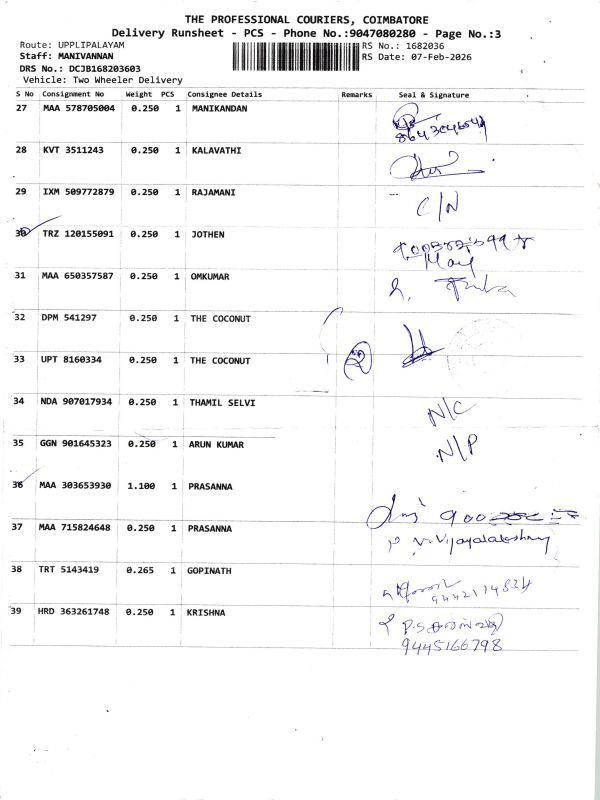 THE PROFESSIONAL COURIERS, COIMBATORE
Delivery Runsheet - PCS - Phone No.:9047080280 - Page No.:3
Route: UPPLIPALAYAM
RS No.: 1682036
Staff: MANIVANNAN
RS Date: 07-Feb-2026
DRS No.: DCJB168203603
Vehicle: Two Wheeler Delivery
S No Consignment No Weight PCS Consignee Details Remarks Seal & Signature
27 MAA 578705004 0.250 1 MANIKANDAN
28 KVT 3511243 0.250 1 KALAVATHI
29 IXM 509772879 0.250 1 RAJAMANI C/N
30 TRZ 120155091 0.250 1 JOTHEN
31 MAA 650357587 0.250 1 OMKUMAR
32 DPM 541297 0.250 1 THE COCONUT
33 UPT 8160334 0.250 1 THE COCONUT
34 NDA 907017934 0.250 1 THAMIL SELVI N/C
35 GGN 901645323 0.250 1 ARUN KUMAR N/P
36 MAA 303653930 1.100 1 PRASANNA
37 MAA 715824648 0.250 1 PRASANNA
38 TRT 5143419 0.265 1 GOPINATH
39 HRD 363261748 0.250 1 KRISHNA
9445166798